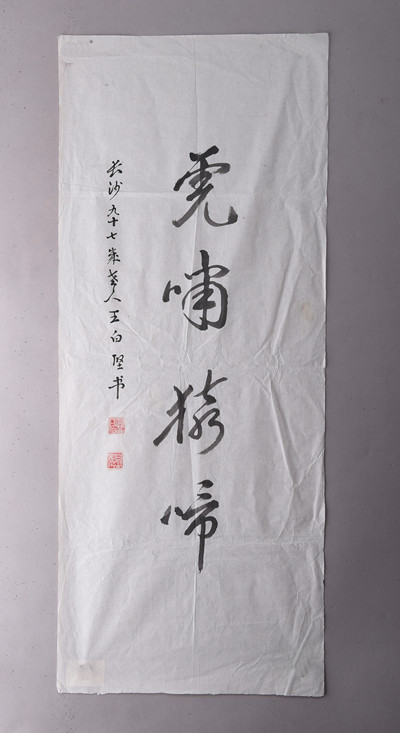 虎啸猿啼
长沙九十七岁老人王白坚书